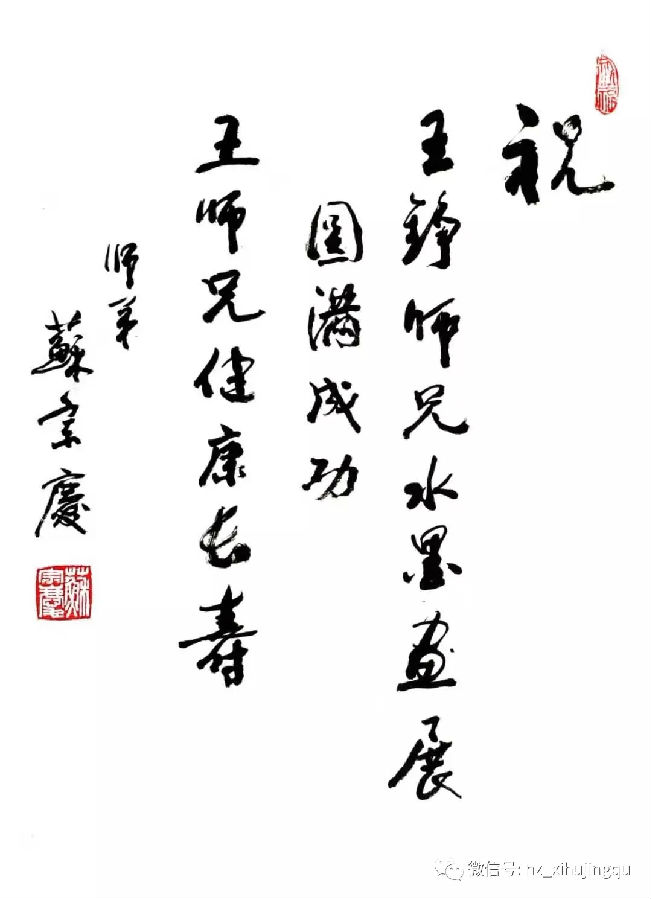 祝
王錚师兄水墨画展
圆满成功
王师兄健康长寿
师弟
蘇宗慶
微信号: hz_xihujingqu